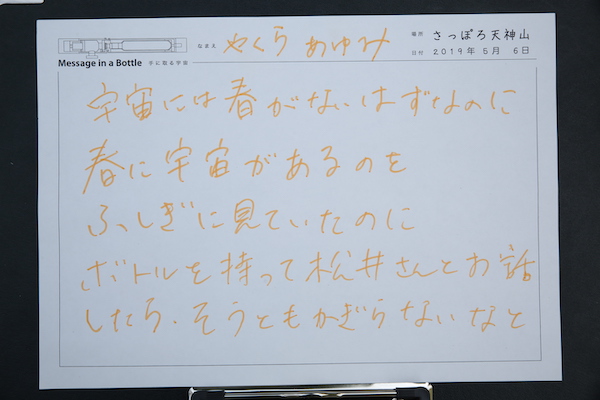 なまえ やくら あゆみ
場所 さっぽろ天神山
日付 2019年 5月 6日
Message in a Bottle 手に取る宇宙
宇宙には春がないはずなのに
春に宇宙があるのを
ふしぎに見ていたのに
ボトルを持って松井さんとお話
したら、そうともかぎらないなと